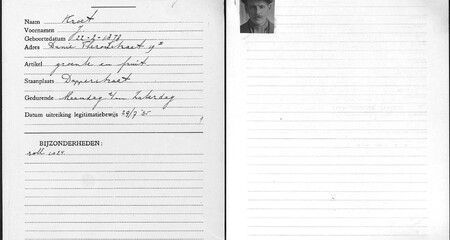 Naam Kroet
Voornamen J
Geboortedatum 22-2-1878
Adres Danie Theronstraat
Artikel groente en fruit
Staanplaats Dapperstraat
Gedurende Maandag t/m Zaterdag
Datum uitreiking legitimatiebewijs 29/7 '35
BIJZONDERHEDEN: